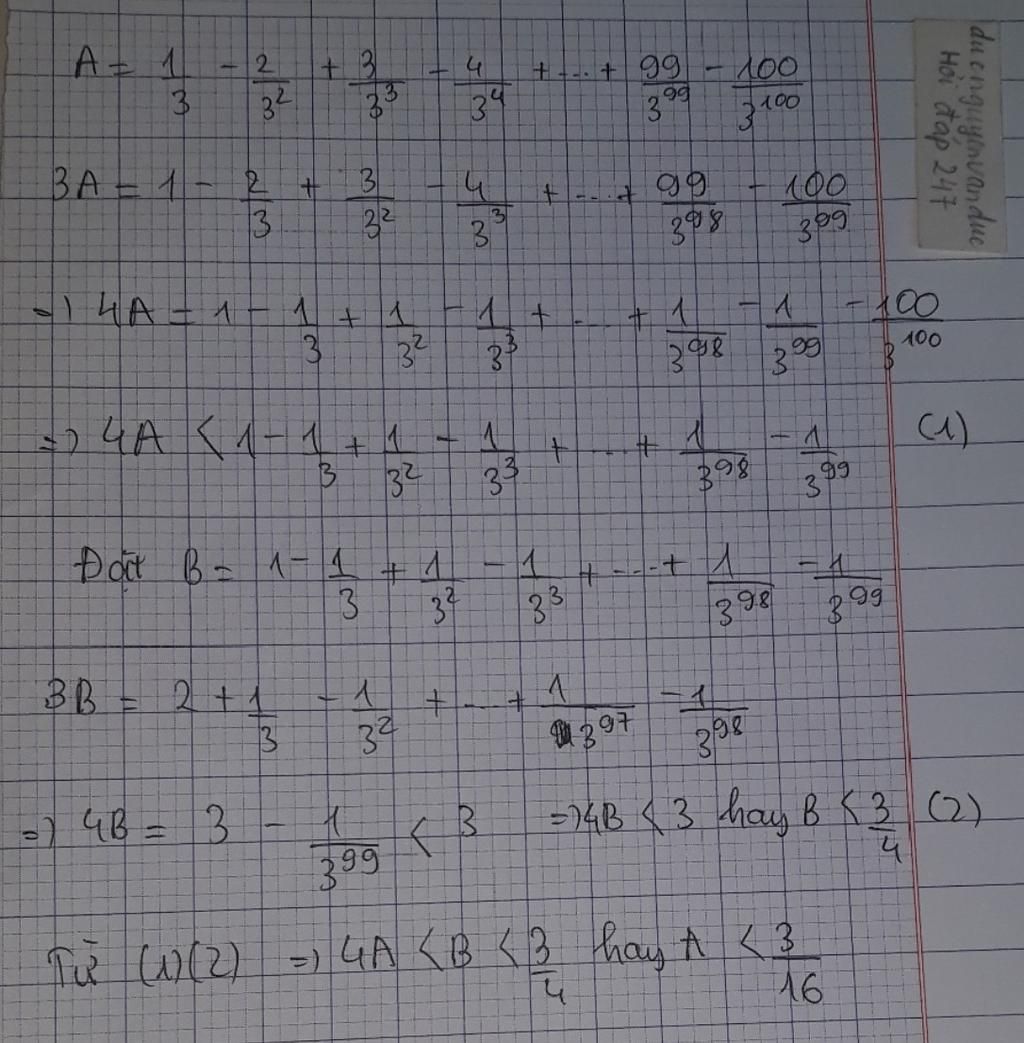 A = 1/3 - 2/3² + 3/3³ - 4/3⁴ + ... + 99/3⁹⁹ - 100/3¹⁰⁰
3A = 1 - 2/3 + 3/3² - 4/3³ + ... + 99/3⁹⁸ - 100/3⁹⁹
=) 4A = 1 - 1/3 + 1/3² - 1/3³ + ... + 1/3⁹⁸ - 1/3⁹⁹ - 100/3¹⁰⁰
=) 4A < 1 - 1/3 + 1/3² - 1/3³ + ... + 1/3⁹⁸ - 1/3⁹⁹ (1)
Đặt B = 1 - 1/3 + 1/3² - 1/3³ + ... + 1/3⁹⁸ - 1/3⁹⁹
3B = 2 + 1/3 - 1/3² + ... + 1/3⁹⁷ - 1/3⁹⁸
=) 4B = 3 - 1/3⁹⁹ < 3 =) 4B < 3 hay B < 3/4 (2)
Từ (1)(2) =) 4A < B < 3/4 hay A < 3/16
ducnguyenvanduc
Hỏi đáp 247